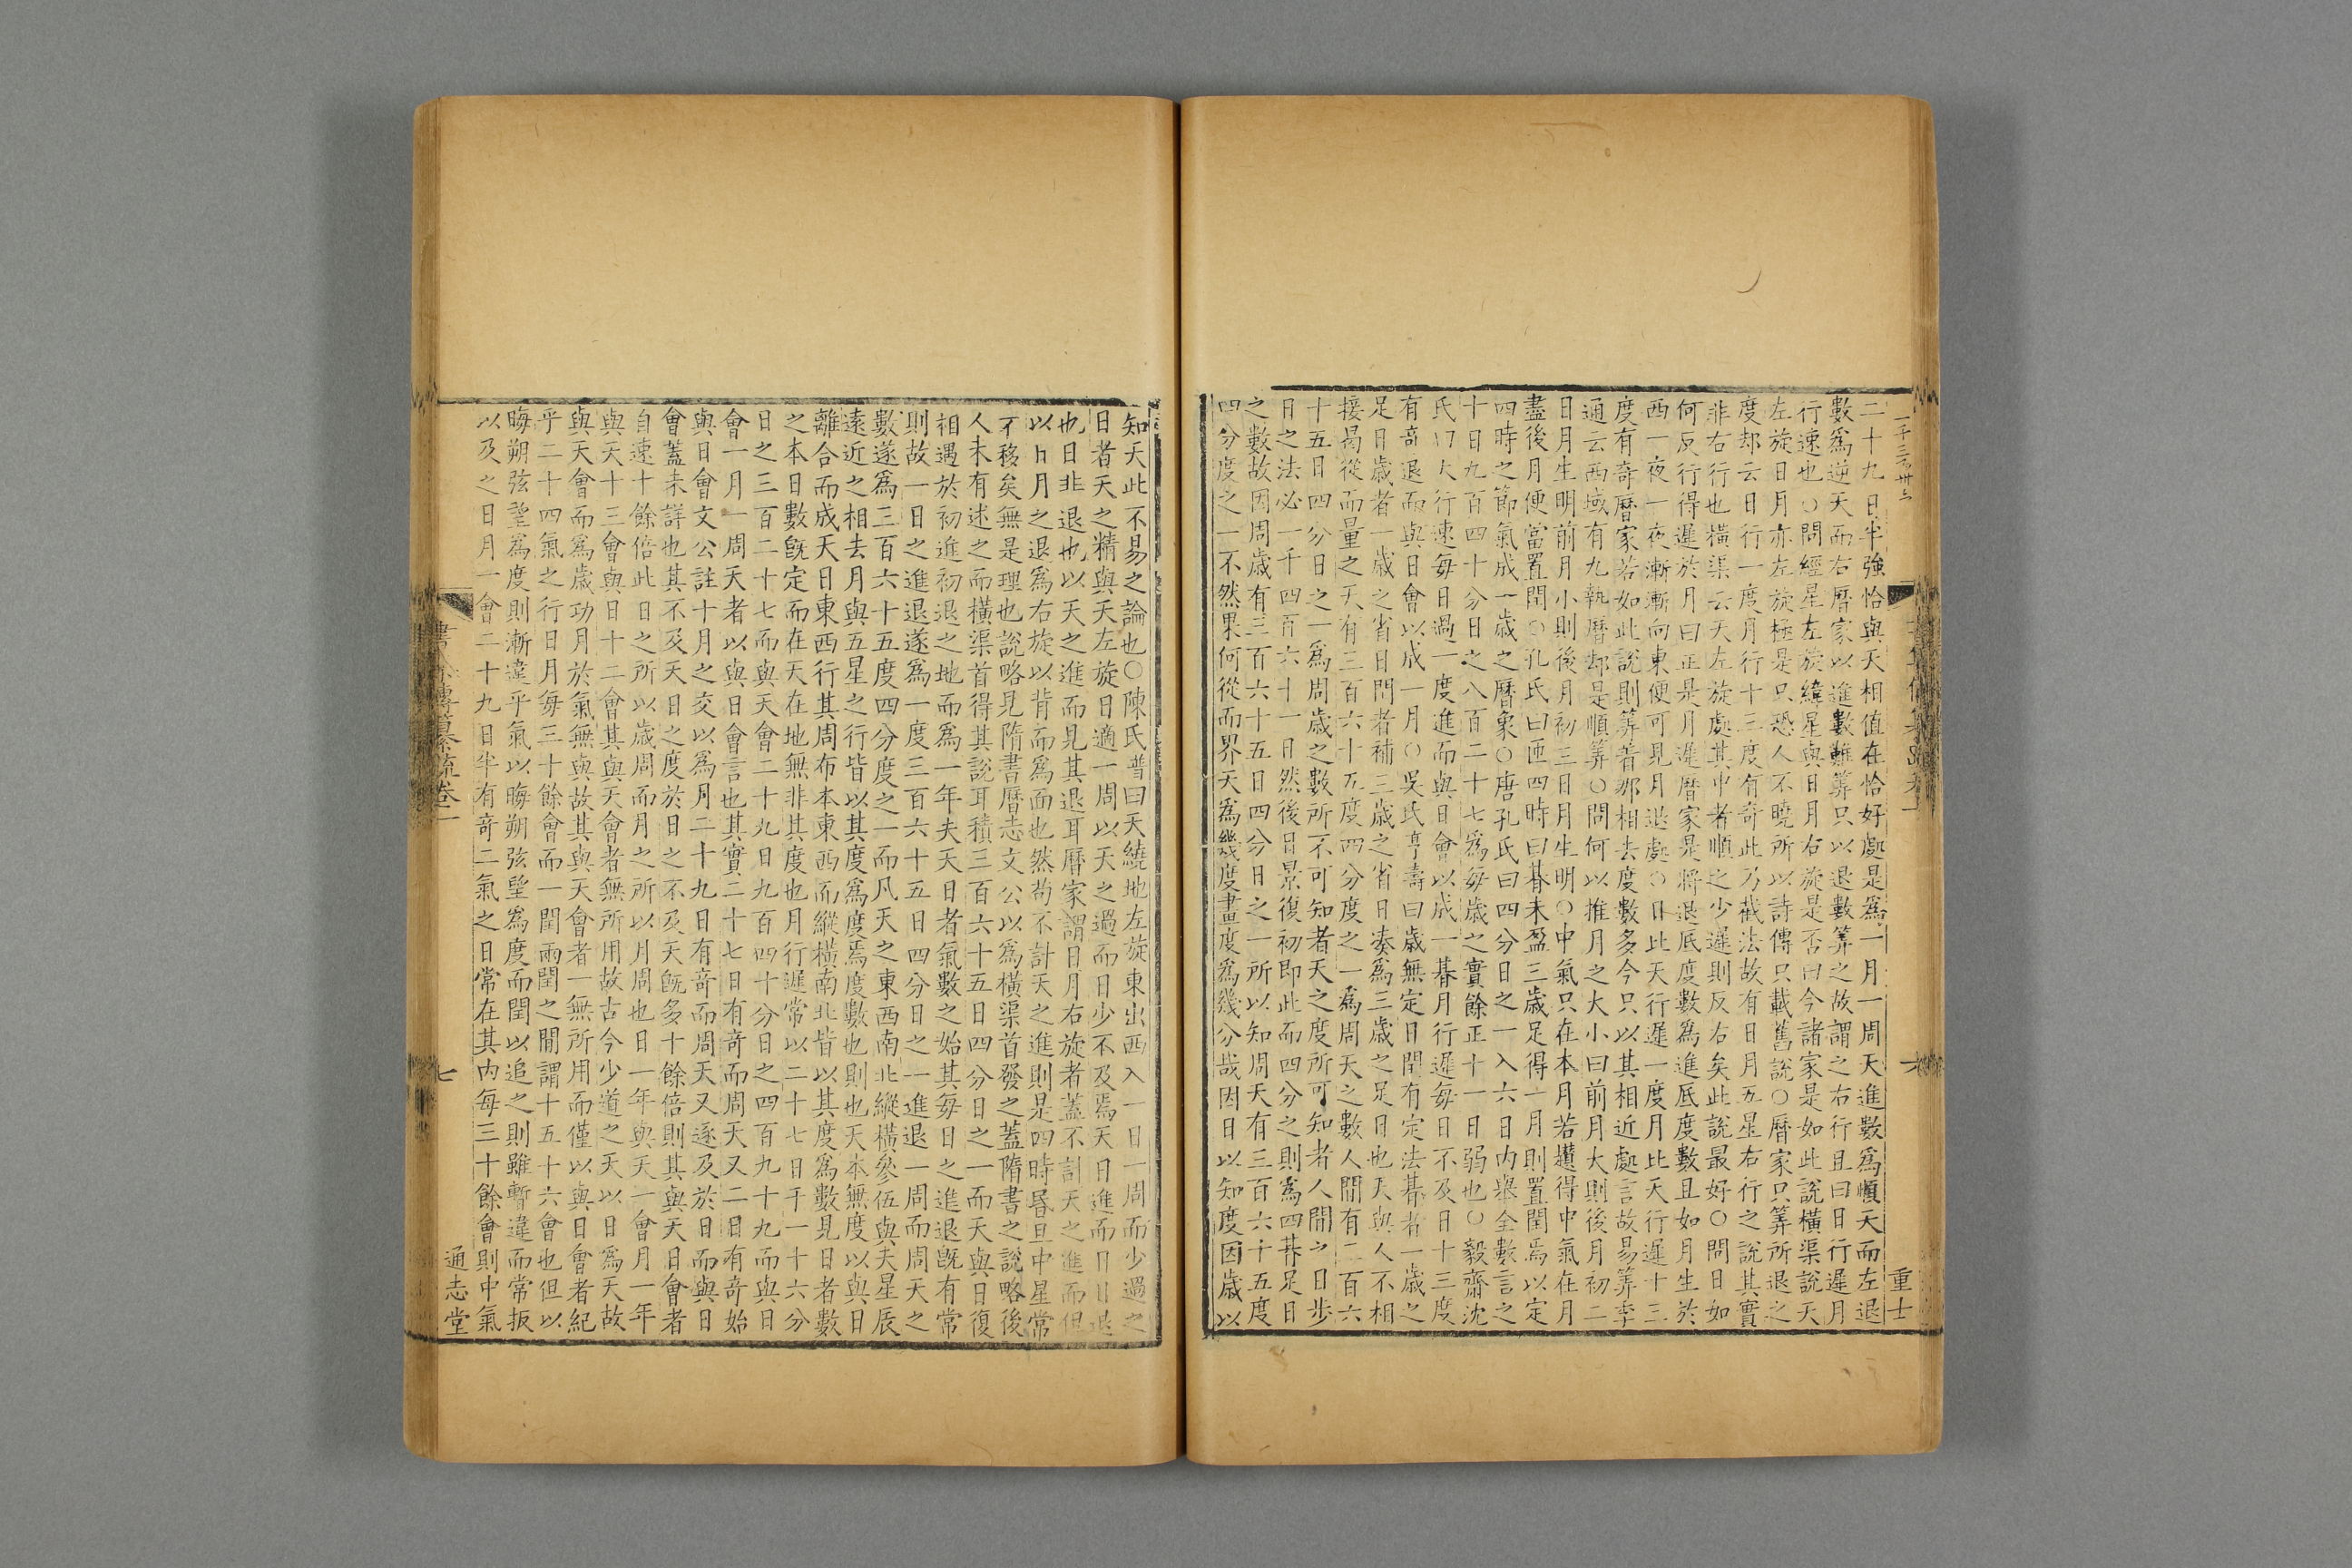 二十九日半強恰與天相值在恰好處是爲一月一周天進數爲順天而左退
數爲逆天而右曆家以進數難筭只以退數筭之故謂之右行且曰日行遲月
行速也○問經星左旋緯星與日月右旋是否曰今諸家是如此說橫渠說天
左旋日月亦左旋極是只恐人不曉所以詩傳只載舊說○曆家只筭所退之
度却云日行一度月行十三度有奇此乃截法故有日月五星右行之說其實
非右行也橫渠云天左旋處其中者順之少遲則反右矣此說最好○問日如
何反行得遲於月曰正是月遲曆家是將退底度數爲進底度數且如月生於
西一夜一夜漸漸向東便可見月退處○日比天行遲一度月比天行遲十三
度有奇曆家若如此說則筭着那相去度數多今只以其相近處言故易筭李
通云西域有九執曆却是順筭○問何以推月之大小曰前月大則後月初二
日月生明前月小則後月初三日月生明○中氣只在本月若趲得中氣在月
盡後月便當置閏○孔氏曰匝四時曰朞未盈三歲足得一月則置閏焉以定
四時之節氣成一歲之曆象○唐孔氏曰四分日之一入六日內舉全數言之
十日九百四十分日之八百二十七爲每歲之實餘正十一日弱也○毅齋沈
氏曰天行速每日過一度進而與日會以成一朞月行遲每日不及日十三度
有奇退而與日會以成一月○吳氏亨壽曰歲無定日閏有定法朞者一歲之
足日歲者一歲之省日閏者補三歲之省日湊爲三歲之足日也天與人不相
接曷從而量之天有三百六十五度四分度之一爲周天之數人間有二百六
十五日四分日之一爲周歲之數所不可知者天之度所可知者人間之日步
日之法必一千四百六十一日然後日景復初即此而四分之則爲四朞足日
之數故因周歲有三百六十五日四分日之一所以知周天有三百六十五度
四分度之一不然果何從而界天爲幾度畫度爲幾分哉因日以知度因歲以
重士
知天此不易之論也○陳氏普曰天繞地左旋東出西入一日一周而少過之
日者天之精與天左旋日適一周以天之過而日少不及焉天日進而日日退
也日非退也以天之進而見其退耳曆家謂日月右旋者蓋不計天之進而但
以日月之退爲右旋以背而爲面也然苟不計天之進則是四時昏旦中星常
不移矣無是理也說略見隋書曆志文公以爲橫渠首發之蓋隋書之說略後
人未有述之而橫渠首得其說耳積三百六十五日四分日之一而天與日復
相遇於初進初退之地而爲一年夫天日者氣數之始其每日之進退既有常
則故一日之進退遂爲一度三百六十五日四分日之一進退一周而周天之
數遂爲三百六十五度四分度之一而凡天之東西南北縱橫參伍與夫星辰
遠近之相去月與五星之行皆以其度爲度焉度數也則也天本無度以與日
離合而成天日東西行其周布本東西而縱橫南北皆以其度爲數見日者數
之本日數旣定而在天在地無非其度也月行遲常以二十七日千一十六分
日之三百二十七而與天會二十九日九百四十分日之四百九十九而與日
會一月一周天者以與日會言也其實二十七日有奇而周天又二日有奇始
與日會文公註十月之交以爲月二十九日有奇而周天又逐及於日而與日
會蓋未詳也其不及天日之度於日之不及天旣多十餘倍則其與天日會者
自速十餘倍此日之所以歲周而月之所以月周也日一年與天一會月一年
與天十三會與日十二會其與天會者無所用故古今少道之天以日爲天故
與天會而爲歲功月於氣無與故其與天會者一無所用而僅以與日會者紀
乎二十四氣之行日月每三十餘會而一閏兩閏之間謂十五十六會也但以
晦朔弦望爲度則漸違乎氣以晦朔弦望爲度而閏以追之則雖暫違而常扳
以及之日月一會二十九日半有奇二氣之日常在其內每三十餘會則中氣
七
通志堂